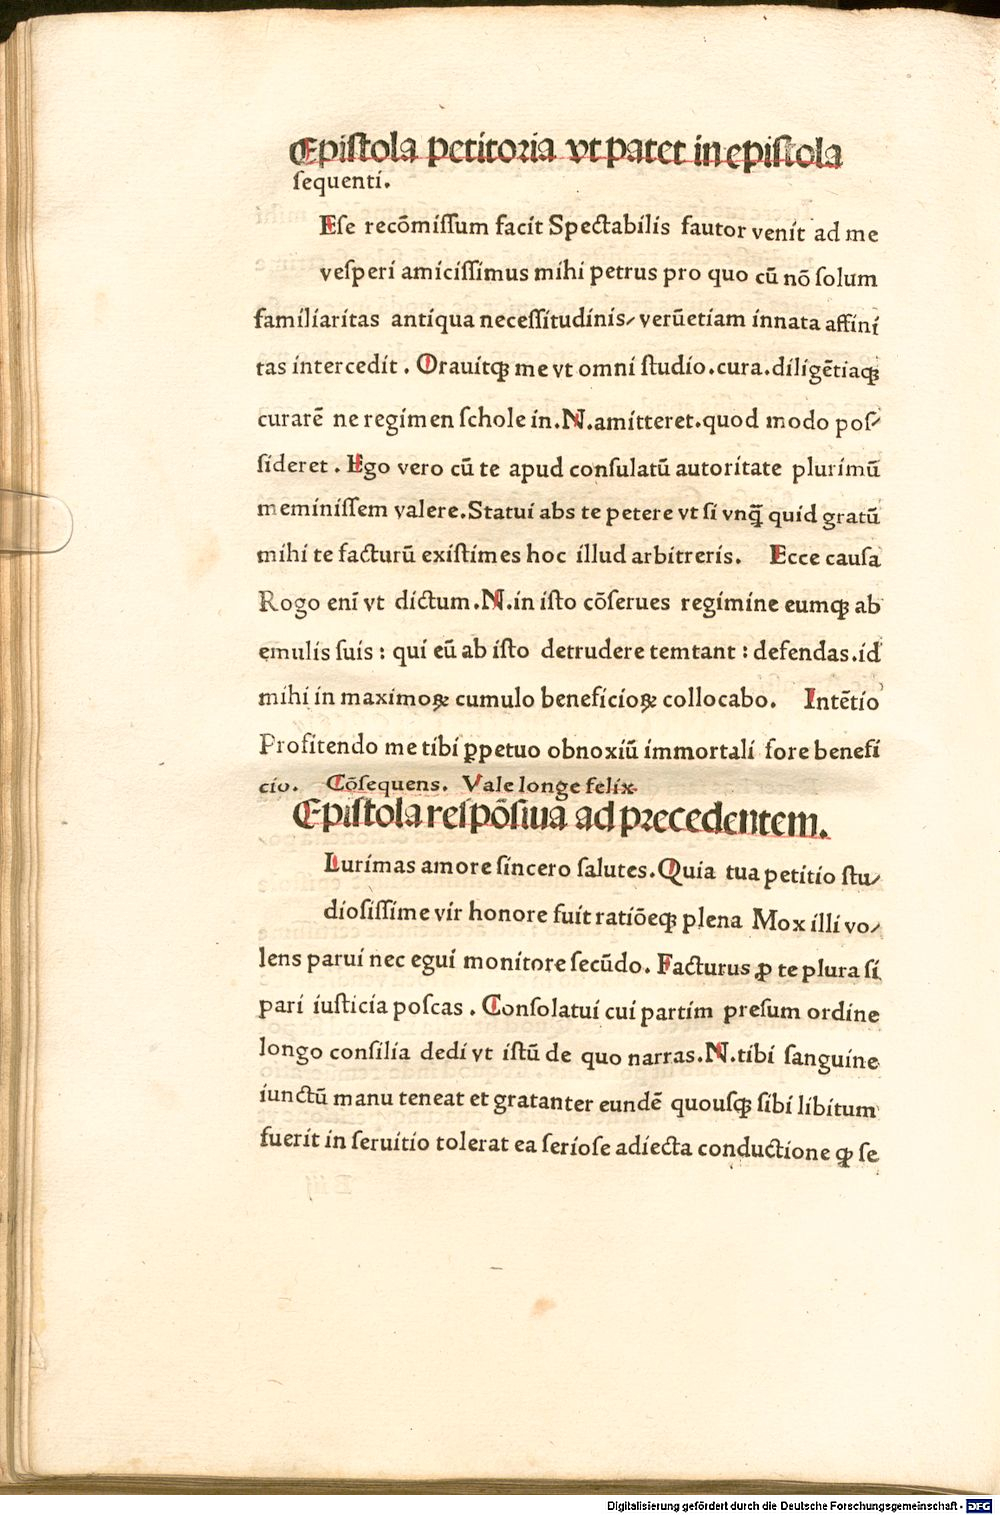 Epiſtola petitoria vt patet in epiſtola
ſequenti.
Eſe recōmiſſum facit Spectabilis fautor venit ad me
veſperi amiciſſimus mihi petrus pro quo cū nō ſolum
familiaritas antiqua neceſſitudinis/ verūetiam innata affini
tas intercedit . Orauitqꝫ me vt omni ſtudio.cura.diligētiaqꝫ
curarē ne regimen ſchole in.N.amitteret.quod modo poſ/
ſideret . Ego vero cū te apud conſulatū autoritate plurimū
meminiſſem valere.Statui abs te petere vt ſi vnq̄ quid gratū
mihi te facturū exiſtimes hoc illud arbitreris. Ecce cauſa
Rogo enī vt dictum.N.in iſto cōſerues regimine eumqꝫ ab
emulis ſuis : qui eū ab iſto detrudere temtant : defendas.id
mihi in maximoꝝ cumulo beneficioꝝ collocabo. Intētio
Profitendo me tibi ꝑpetuo obnoxiū immortali fore benefi
cio. Cōſequens. Vale longe felix.
Epiſtola reſpōſiua ad precedentem.
Lurimas amore ſincero ſalutes.Quia tua petitio ſtu/
dioſiſſime vir honore fuit ratiōeqꝫ plena Mox illi vo/
lens parui nec egui monitore ſecūdo. Facturus ꝓ te plura ſi
pari iuſticia poſcas . Conſolatui cui partim preſum ordine
longo conſilia dedi vt iſtū de quo narras.N.tibi ſanguine
iunctū manu teneat et gratanter eundē quouſqꝫ ſibi libitum
fuerit in ſeruitio tolerat ea ſerioſe adiecta conductione qꝫ ſe
Digitalisierung gefördert durch die Deutsche Forschungsgemeinschaft - DFG